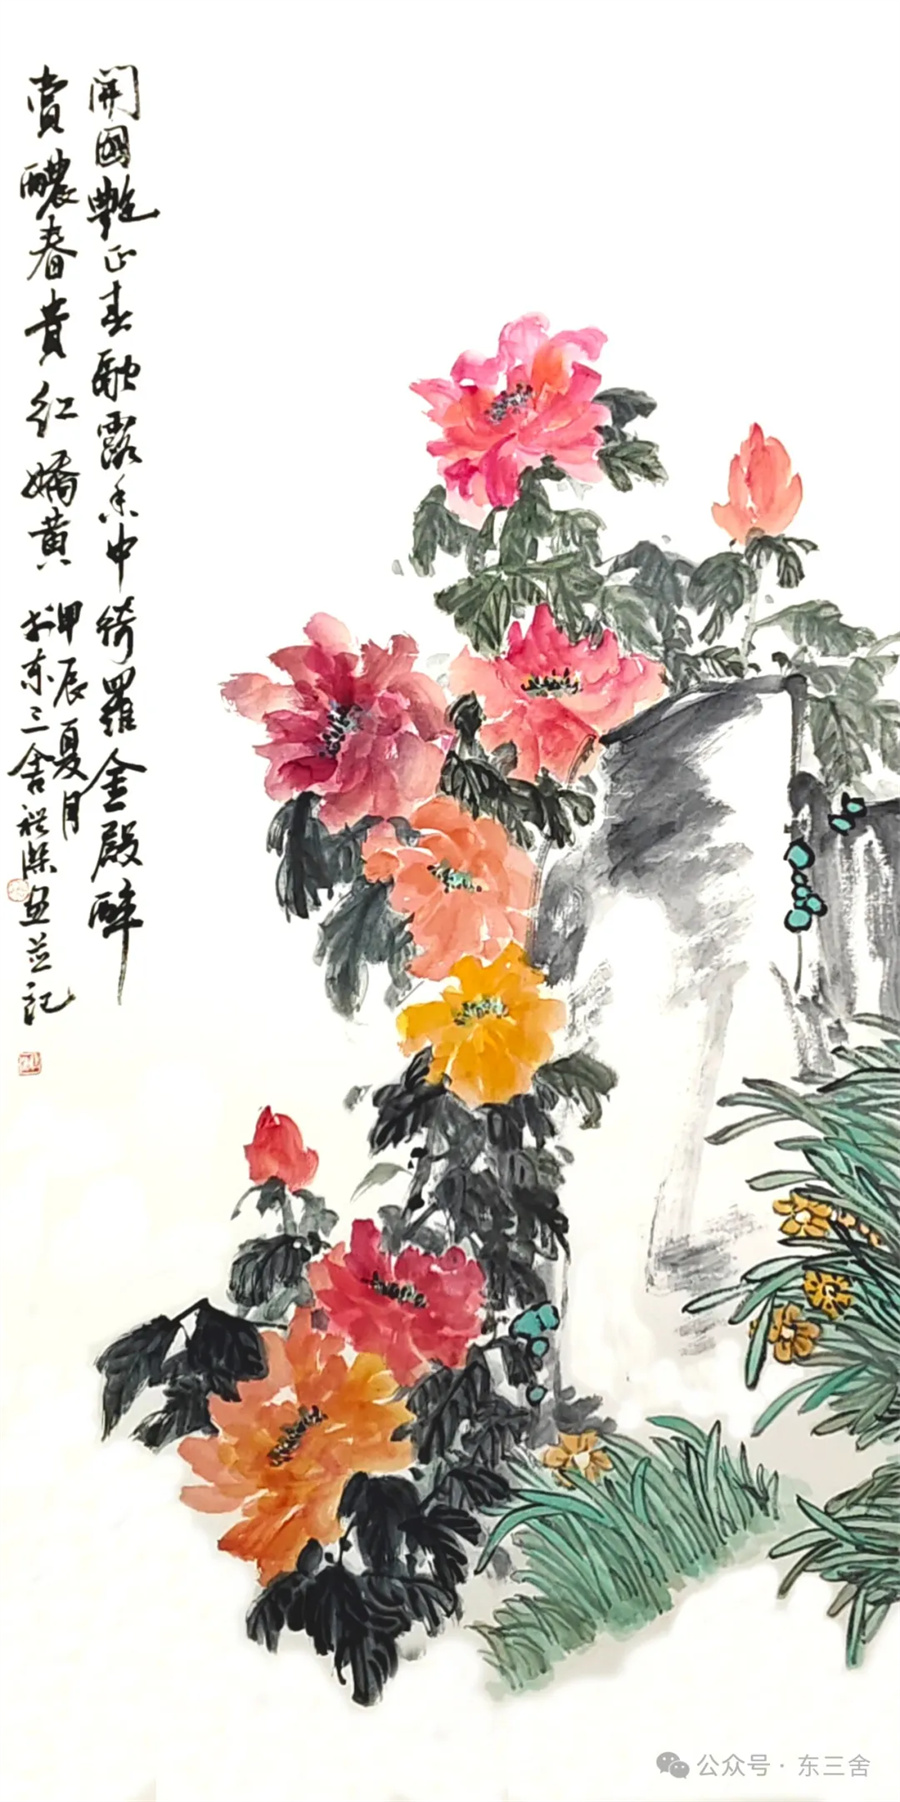 開國艷正春融露香中綺羅金殿醉
賞醲春貴紅嬌黄
甲辰夏月
於東三舍
画並記
公众号·东三舍